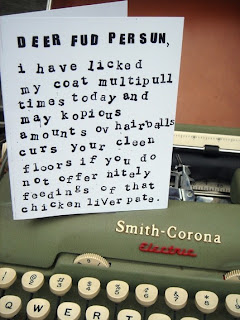 DEER FUD PERSUN,
i have licked
my coat multipull
times today and
may kopious
amounts ov hairballs
curs your cleen
floors if you do
not offer nitely
feedings of that
chicken liver pate.
Smith-Corona
Electric
Q W E R T